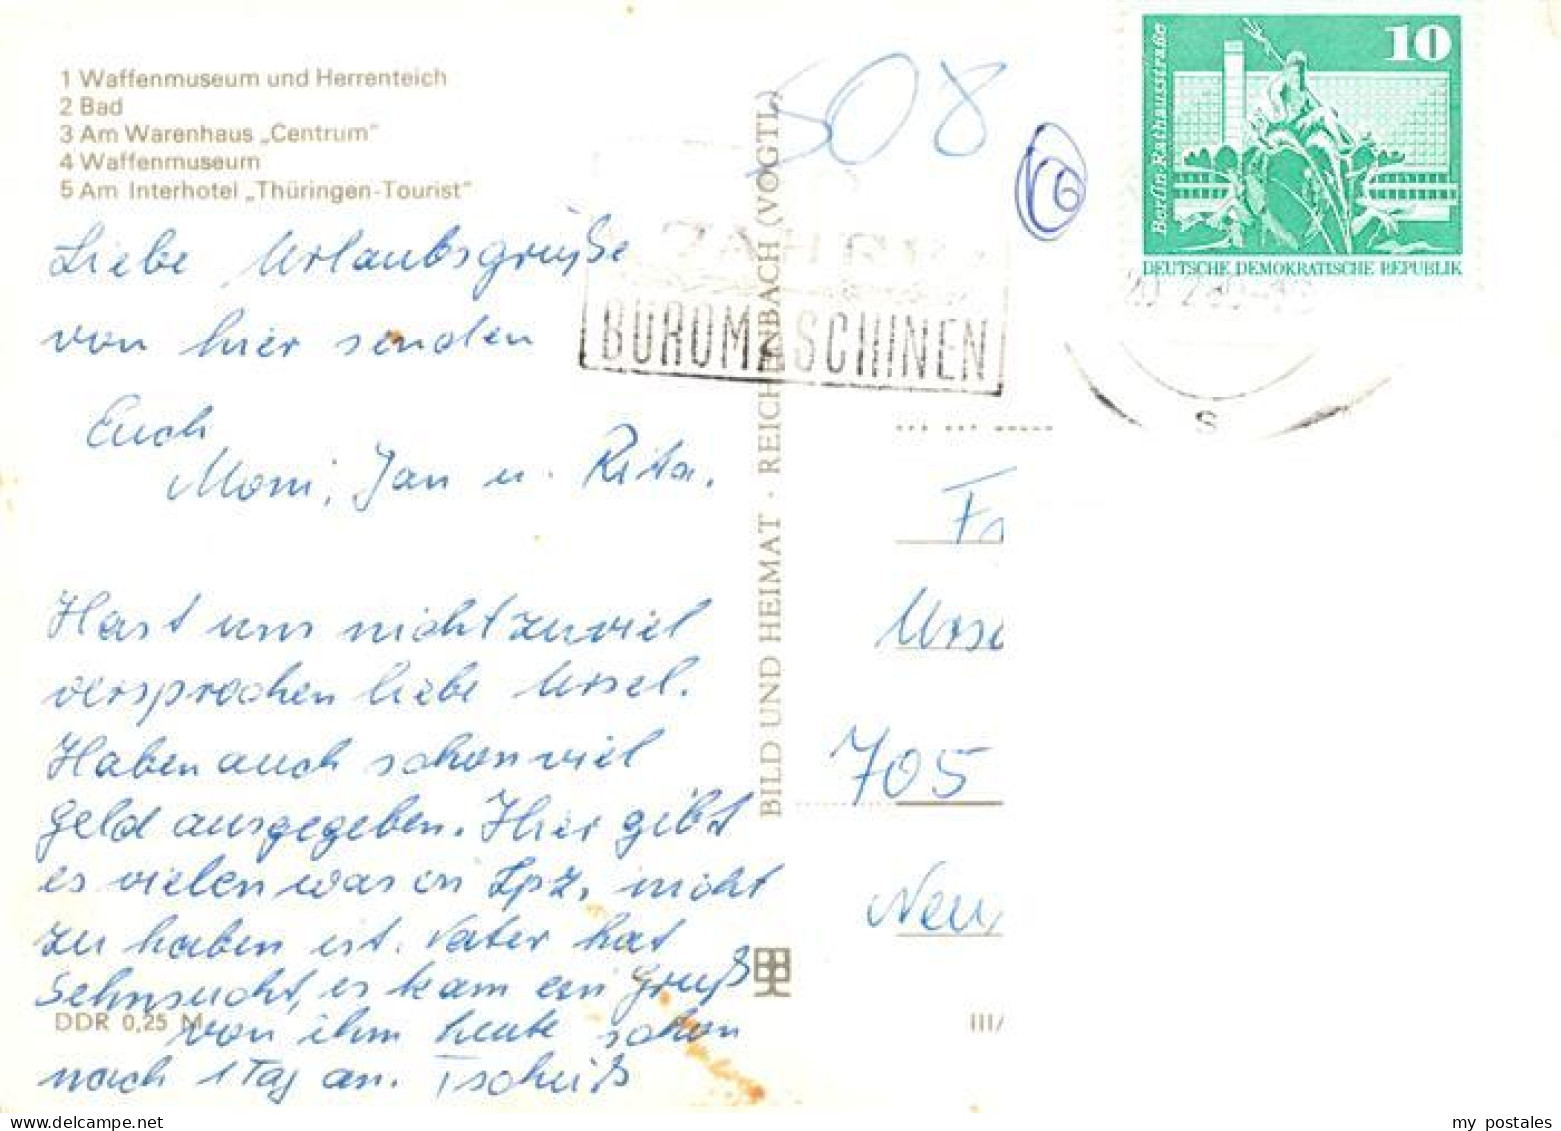 1 Waffenmuseum und Herrenteich
2 Bad
3 Am Warenhaus „Centrum"
4 Waffenmuseum
5 Am Interhotel „Thüringen-Tourist"
Liebe Urlaubsgrüße
von hier senden
Euch
Moni, Jan u. Rita.
Hast uns nicht zuviel
versprochen liebe Ursel.
Haben auch schon viel
Geld ausgegeben. Hier gibt
es vielen was in Lpz. nicht
zu haben ist. Vater hat
Sehnsucht, es kam ein Gruß
von ihm heute schon
nach 1 Tag an. Tschüß
DDR 0,25 M
BILD UND HEIMAT · REICHENBACH (VOGTL)
508
BÜROMASCHINEN
10
Berlin-Rathausstraße
DEUTSCHE DEMOKRATISCHE REPUBLIK
S
705
III/
my postales